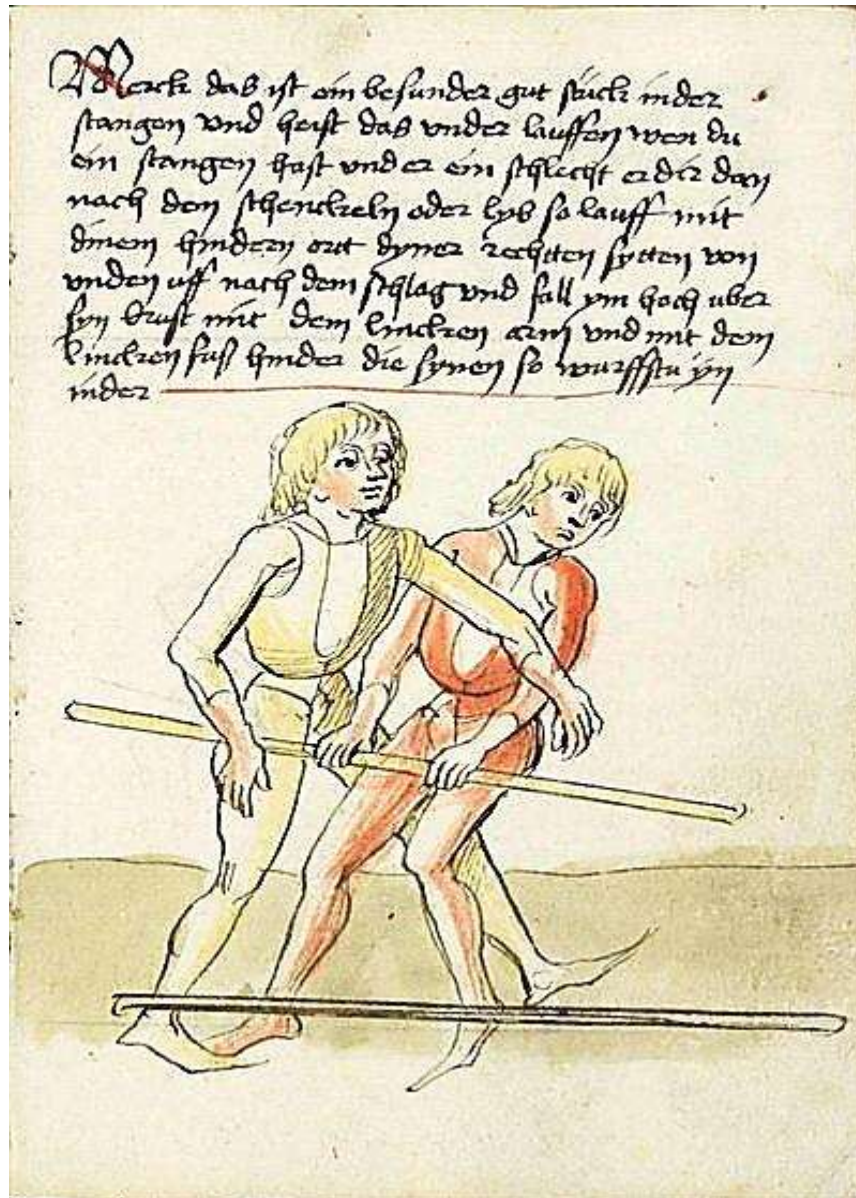 Merck das ist ein besunder gut stuck in der
stangen vnd heist das vnder lauffen wen du
ein stangen hast vnd er ein schlecht er dir dan
nach den schenckeln oder lyb so lauff mit
dinem hindern ortt dyner rechtten sytten von
vnden uff nach dem schlag vnd fall ym hoch uber
syn brust mit dem lincken arm vnd mit dem
lincken fuß hinder die synen so wurffstu yn
in der